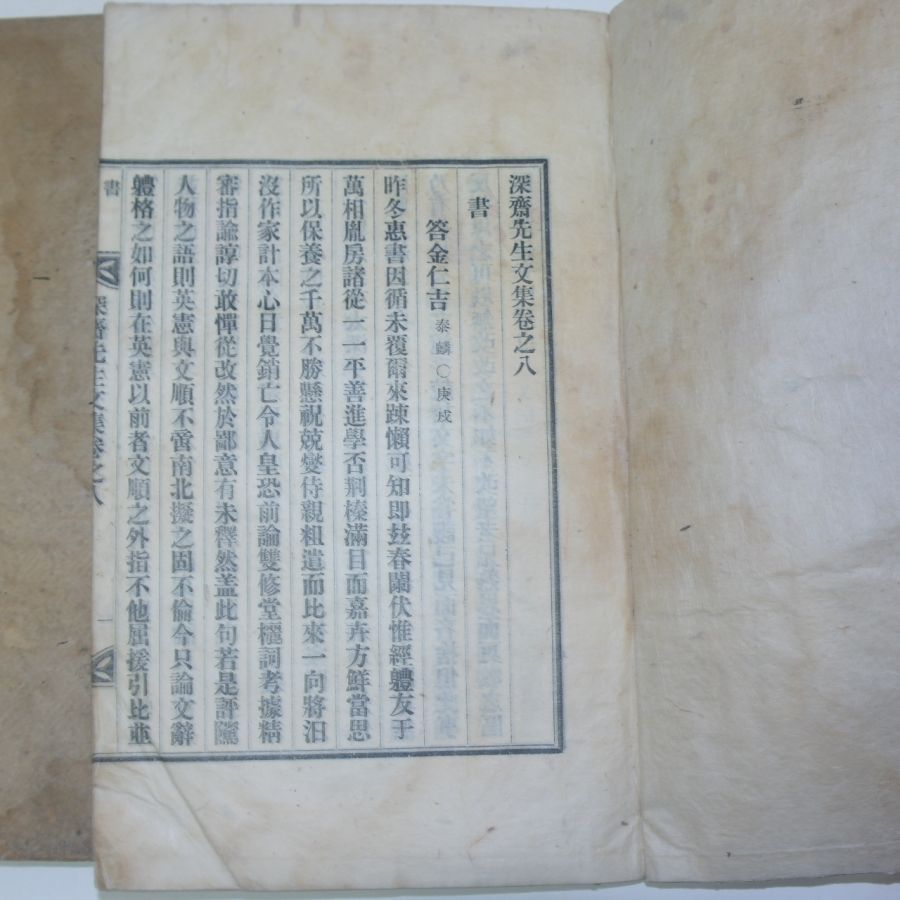 深齋先生文集卷之八
書
答金仁吉 泰麟○庚戌
昨冬惠書因循未覆爾來踈懶可知即玆春闌伏惟經軆友于
萬相胤房諸從一一平善進學否荆榛滿目而嘉卉方鮮當思
所以保養之千萬不勝懸祝兢燮侍親粗遣而比來一向將汨
沒作家計本心日覺銷亡令人皇恐前論雙修堂欐詞考據精
審指論諄切敢憚從改然於鄙意有未釋然盖此句若是評隲
人物之語則英憲與文順不啻南北擬之固不倫今只論文辭
軆格之如何則在英憲以前者文順之外指不他屈援引比並
書
深齋先生文集卷之八
一